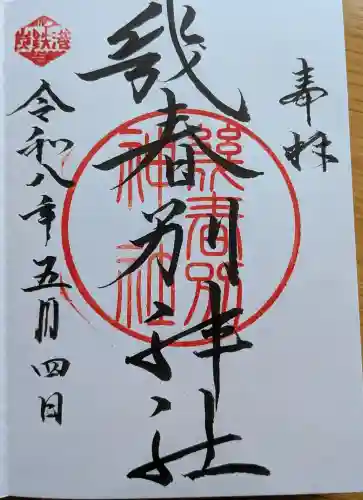 奉拝
幾春別神社
令和八年五月四日
幾春別
神社